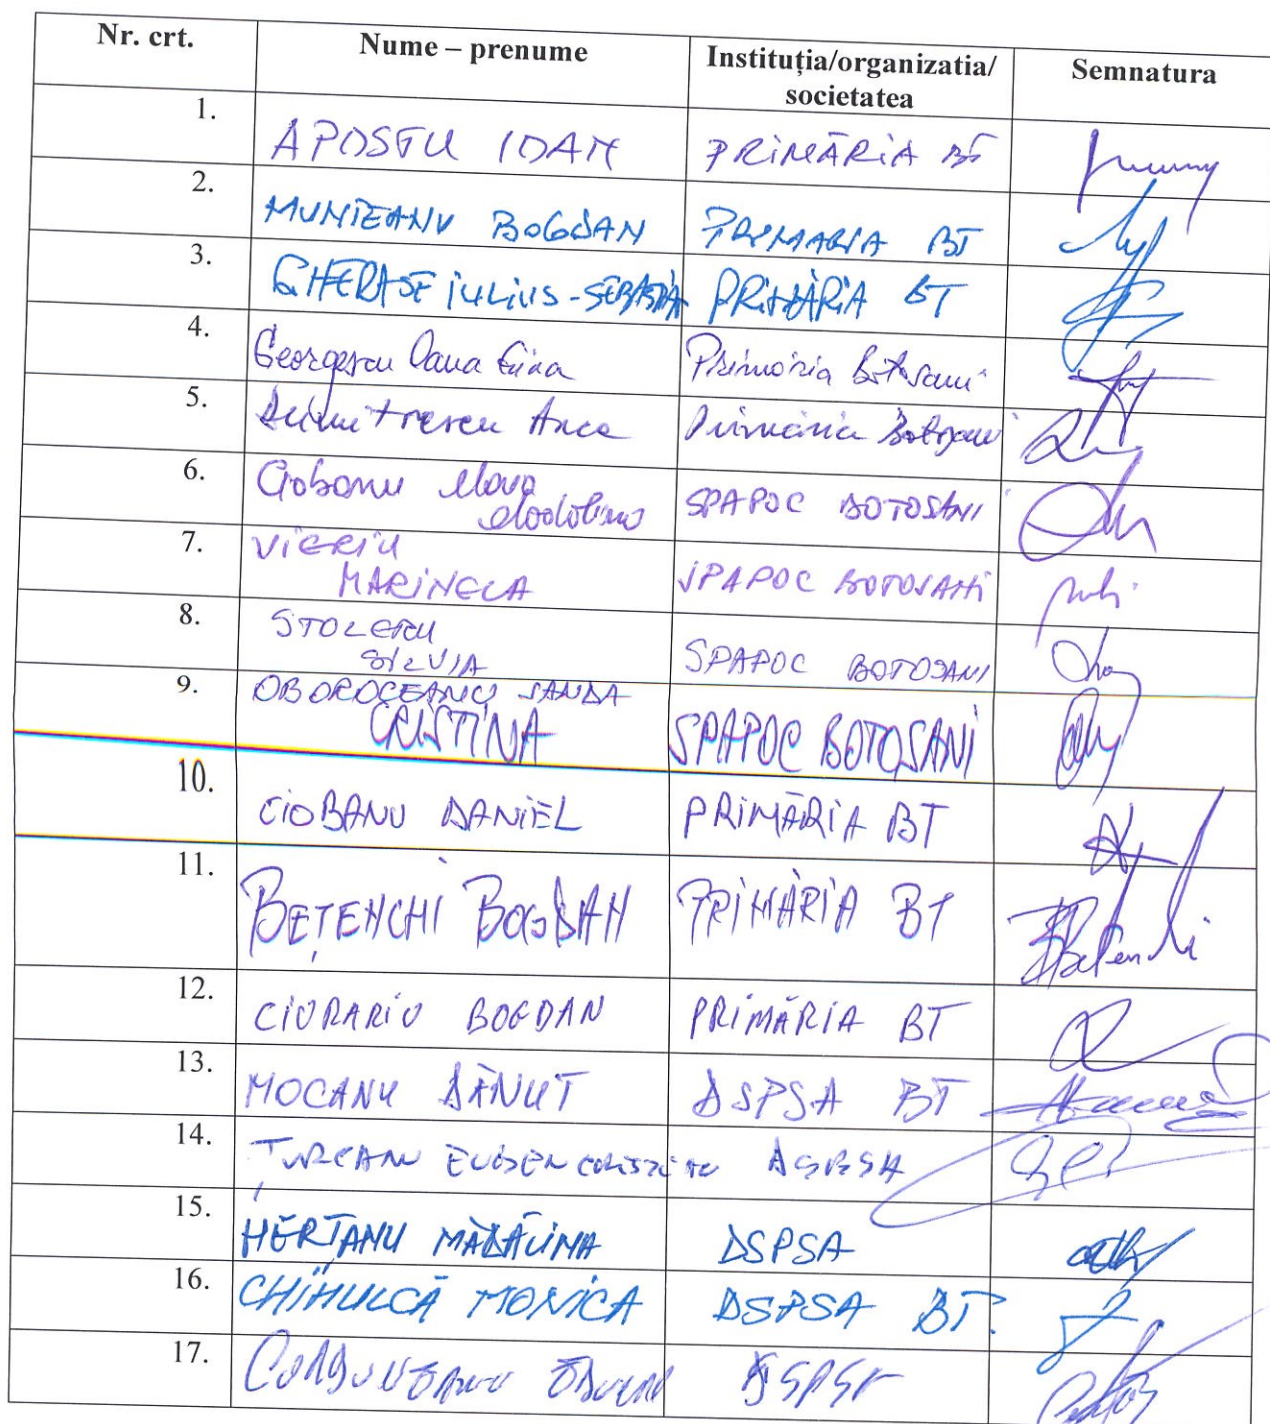 Nr. crt. Nume – prenume Instituția/organizatia/ societatea Semnatura
1. APOSTU IOAN PRIMĂRIA BT
2. MUNTEANU BOGDAN PRIMARIA BT
3. GHERASE IULIUS-SEBASTIAN PRIMĂRIA BT
4. Georgescu Oana Gina Primăria Botosani
5. Dumitrescu Anca Primăria Botoșani
6. Ciobanu Mădălina SPAPOC BOTOSANI
7. VIERIU
MARINELA SPAPOC BOTOSANI
8. STOLERU
SILVIA SPAPOC BOTOSANI
9. OBOROCEANU SANDA
CRISTINA SPAPOC BOTOȘANI
10. CIOBANU DANIEL PRIMĂRIA BT
11. BEȚENCHI BOGDAN PRIMĂRIA BT
12. CIURARIU BOGDAN PRIMĂRIA BT
13. MOCANU DĂNUT DSPSA BT
14. ȚURCANU EUGEN CRISTIAN DSPSA
15. HERȚANU MĂDĂLINA DSPSA
16. CHIHULCĂ MONICA DSPSA BT.
17. DSPSA